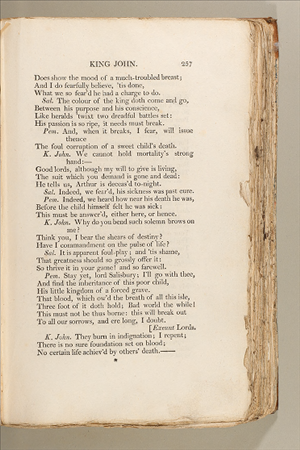 KING JOHN. 257
Does show the mood of a much-troubled breast;
And I do fearfully believe, 'tis done,
What we so fear'd he had a charge to do.
Sal. The colour of the king doth come and go,
Between his purpose and his conscience,
Like heralds 'twixt two dreadful battles set:
His passion is so ripe, it needs must break.
Pem. And, when it breaks, I fear, will issue
thence
The foul corruption of a sweet child's death.
K. John. We cannot hold mortality's strong
hand:—
Good lords, although my will to give is living,
The suit which you demand is gone and dead:
He tells us, Arthur is deceas'd to-night.
Sal. Indeed, we fear'd, his sickness was past cure.
Pem. Indeed, we heard how near his death he was,
Before the child himself felt he was sick:
This must be answer'd, either here, or hence.
K. John. Why do you bend such solemn brows on
me?
Think you, I bear the shears of destiny?
Have I commandment on the pulse of life?
Sal. It is apparent foul-play; and 'tis shame,
That greatness should so grossly offer it:
So thrive it in your game! and so farewell.
Pem. Stay yet, lord Salisbury; I'll go with thee,
And find the inheritance of this poor child,
His little kingdom of a forced grave.
That blood, which ow'd the breath of all this isle,
Three foot of it doth hold; Bad world the while!
This must not be thus borne: this will break out
To all our sorrows, and ere long, I doubt.
[Exeunt Lords.
K. John. They burn in indignation; I repent;
There is no sure foundation set on blood;
No certain life achiev'd by others' death.——